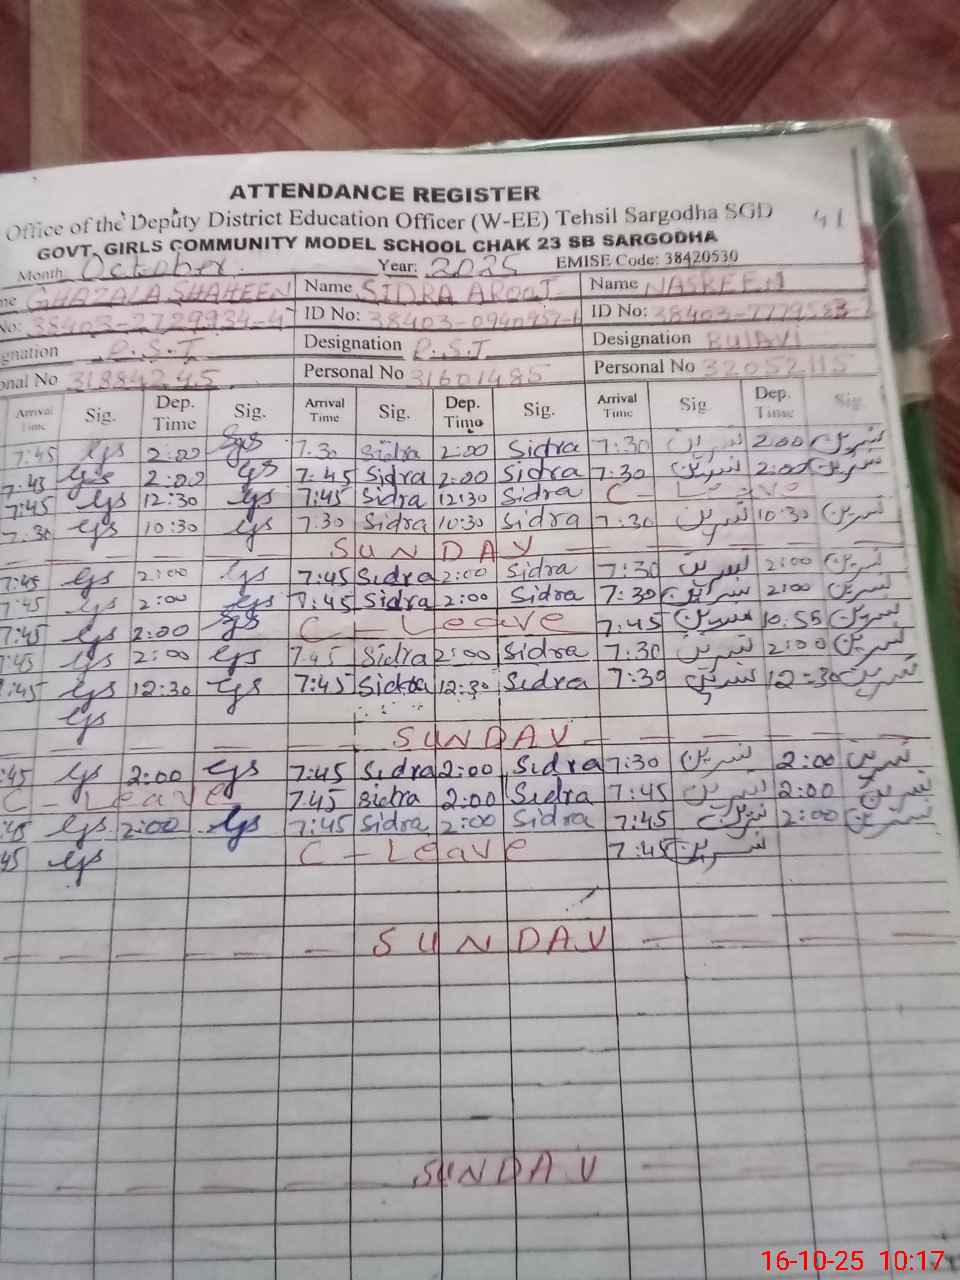 ATTENDANCE REGISTER
Office of the Deputy District Education Officer (W-EE) Tehsil Sargodha SGD 41
GOVT. GIRLS COMMUNITY MODEL SCHOOL CHAK 23 SB SARGODHA
Month: October. Year: 2025 EMISE Code: 38420530
me GHAZALA SHAHEEN Name SIDRA AROOJ Name NASREEN
No: 38403-2729934-4 ID No: 38403-0940957-6 ID No: 38403-7779583-2
gnation P.S.T Designation P.S.T Designation BUIAVI
onal No 31884245 Personal No 31601485 Personal No 32052115
Arrival Time Sig. Dep. Time Sig. Arrival Time Sig. Dep. Time Sig. Arrival Time Sig. Dep. Time Sig.
7:45 2:00 7:30 Sidra 2:00 Sidra 7:30 نسرین 2:00 نسرین
7:45 2:00 7:45 Sidra 2:00 Sidra 7:30 نسرین 2:00 نسرین
7:45 12:30 7:45 Sidra 12:30 Sidra C - Leave
7:30 10:30 7:30 Sidra 10:30 Sidra 7:30 نسرین 10:30 نسرین
SUNDAY
7:45 2:00 7:45 Sidra 2:00 Sidra 7:30 نسرین 2:00 نسرین
7:45 2:00 7:45 Sidra 2:00 Sidra 7:30 نسرین 2:00 نسرین
7:45 2:00 C - Leave 7:45 نسرین 10:55 نسرین
7:45 2:00 7:45 Sidra 2:00 Sidra 7:30 نسرین 2:00 نسرین
:45 12:30 7:45 Sidra 12:30 Sidra 7:30 نسرین 12:30 نسرین
SUNDAY
:45 2:00 7:45 Sidra 2:00 Sidra 7:30 نسرین 2:00 نسرین
C - Leave 7:45 Sidra 2:00 Sidra 7:45 نسرین 2:00 نسرین
:45 2:00 7:45 Sidra 2:00 Sidra 7:45 نسرین 2:00 نسرین
45 C - Leave 7:45 نسرین
SUNDAY
SUNDAY
16-10-25 10:17